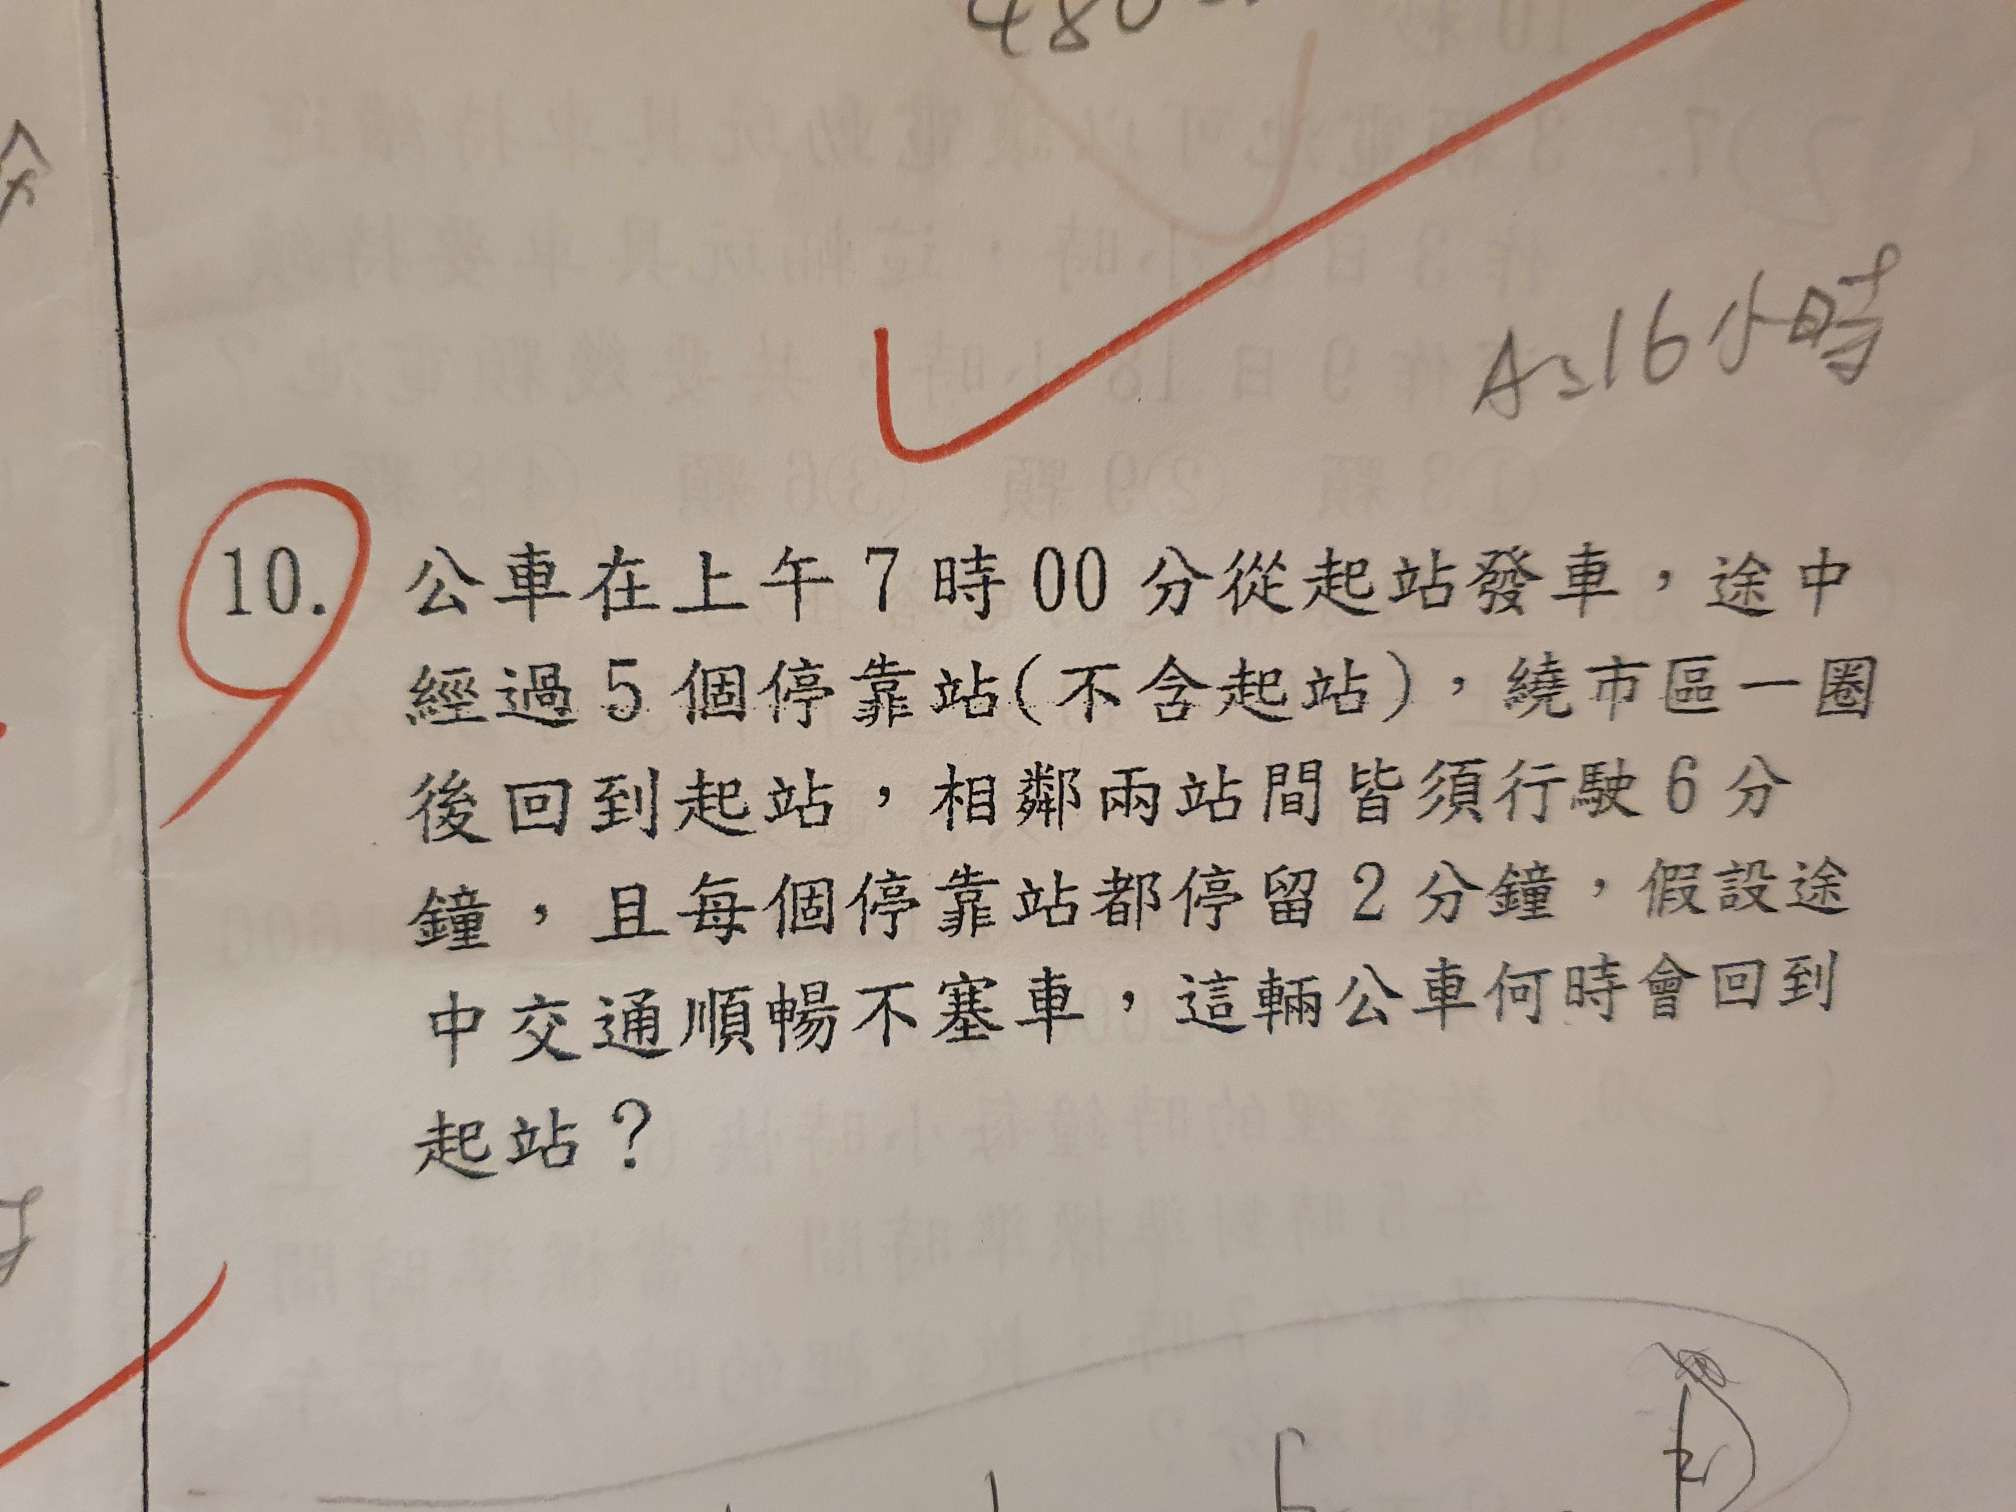 A:16小時
10. 公車在上午7時00分從起站發車，途中
經過5個停靠站(不含起站)，繞市區一圈
後回到起站，相鄰兩站間皆須行駛6分
鐘，且每個停靠站都停留2分鐘，假設途
中交通順暢不塞車，這輛公車何時會回到
起站？
起